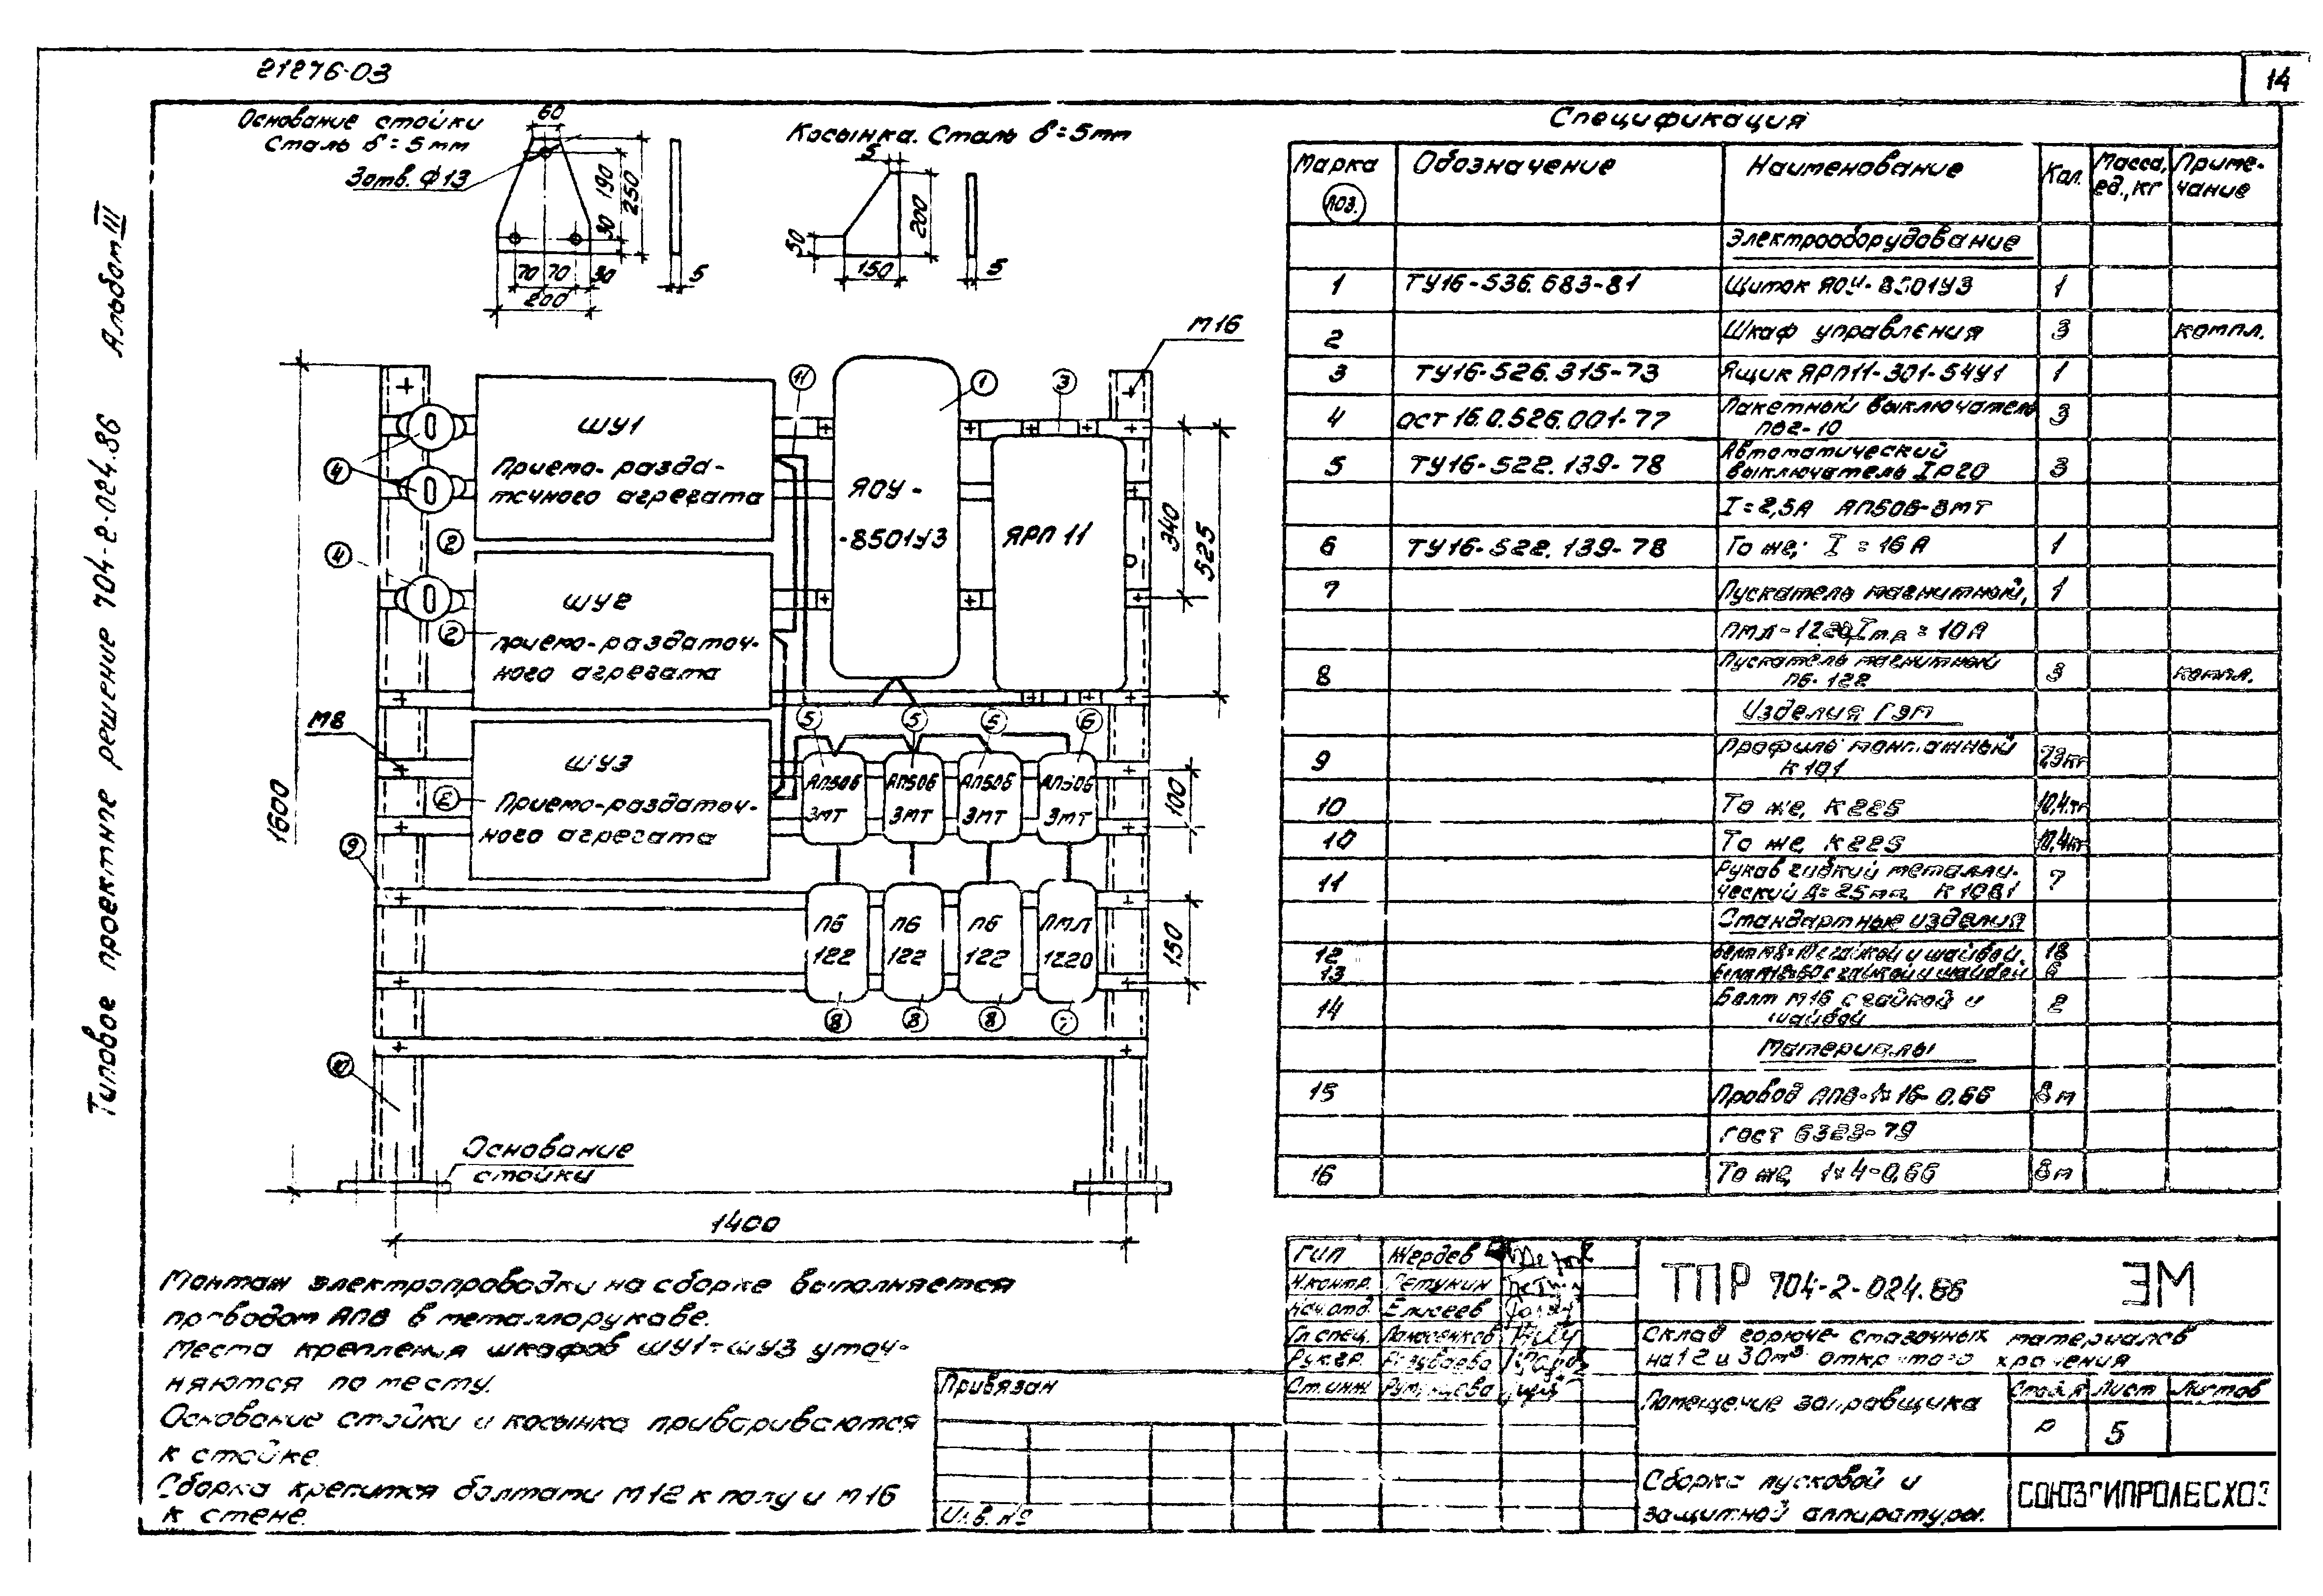 21276-03
14
Типовое проектное решение 704-2-024.86 Альбом III
Основание стойки
Сталь δ=5мм
3отв. ф13
60
190
250
30
70 70 30
200
5
Косынка. Сталь δ=5мм
5
200
50
150
5
М16
11
1
3
4
4
2
2
2
ШУ1
Приемо-разда-
точного агрегата
ШУ2
приемо-раздаточ-
ного агрегата
ШУ3
Приемо-раздаточ-
ного агрегата
ЯОУ-
-8501У3
ЯРП 11
340
525
М8
1600
5
5
5
6
АП50Б
3МТ
АП50Б
3МТ
АП50Б
3МТ
АП50Б
3МТ
100
9
ПБ
122
ПБ
122
ПБ
122
ПМЛ
1220
150
8
8
8
7
10
Основание
стойки
1400
Монтаж электропроводки на сборке выполняется
проводом АПВ в металлорукаве.
Места крепления шкафов ШУ1÷ШУ3 уточ-
няются по месту.
Основание стойки и косынка привариваются
к стойке.
Сборка крепится болтами М12 к полу и М16
к стене.
Спецификация
Марка поз. Обозначение Наименование Кол. Масса, ед., кг Приме-чание
Электрооборудование
1 ТУ16-536.683-81 Щиток ЯОУ-8501У3 1
2 Шкаф управления 3 компл.
3 ТУ16-526.315-73 Ящик ЯРП11-301-54У1 1
4 ОСТ 16.0.526.001-77 Пакетный выключатель 3
ПВ2-10
Автоматический
5 ТУ16-522.139-78 выключатель IP20 3
I=2,5А АП50Б-3МТ
6 ТУ16-522.139-78 То же, I=16А 1
7 Пускатель магнитный, 1
ПМЛ-1220, Iт.р=10А
8 Пускатель магнитный 3 компл.
ПБ-122
Изделия ГЭМ
9 Профиль монтажный 23кг
К101
10 То же, К225 10,4кг
10 То же, К225 10,4кг
11 Рукав гибкий металли- 7
ческий д=25мм К1081
Стандартные изделия
12 с гайкой и шайбой. 18
13 с гайкой и шайбой 6
14 Болт М16 с гайкой и 2
шайбой
Материалы
15 Провод АПВ-1х16-0.66 8м
ГОСТ 6323-79
16 То же, 1х4-0,66 8м
ГИП Жердев
Н.контр. Петунин
Нач.отд. Елисеев
Гл.спец.
Рук.гр.
Ст.инж.
ТПР 704-2-024.86 ЭМ
Склад горюче-смазочных материалов
на 12 и 30м³ открытого хранения
Помещение заправщика
Стадия Лист Листов
Р 5
Сборка пусковой и
защитной аппаратуры.
СОЮЗГИПРОЛЕСХОЗ
Привязан
Инв. №